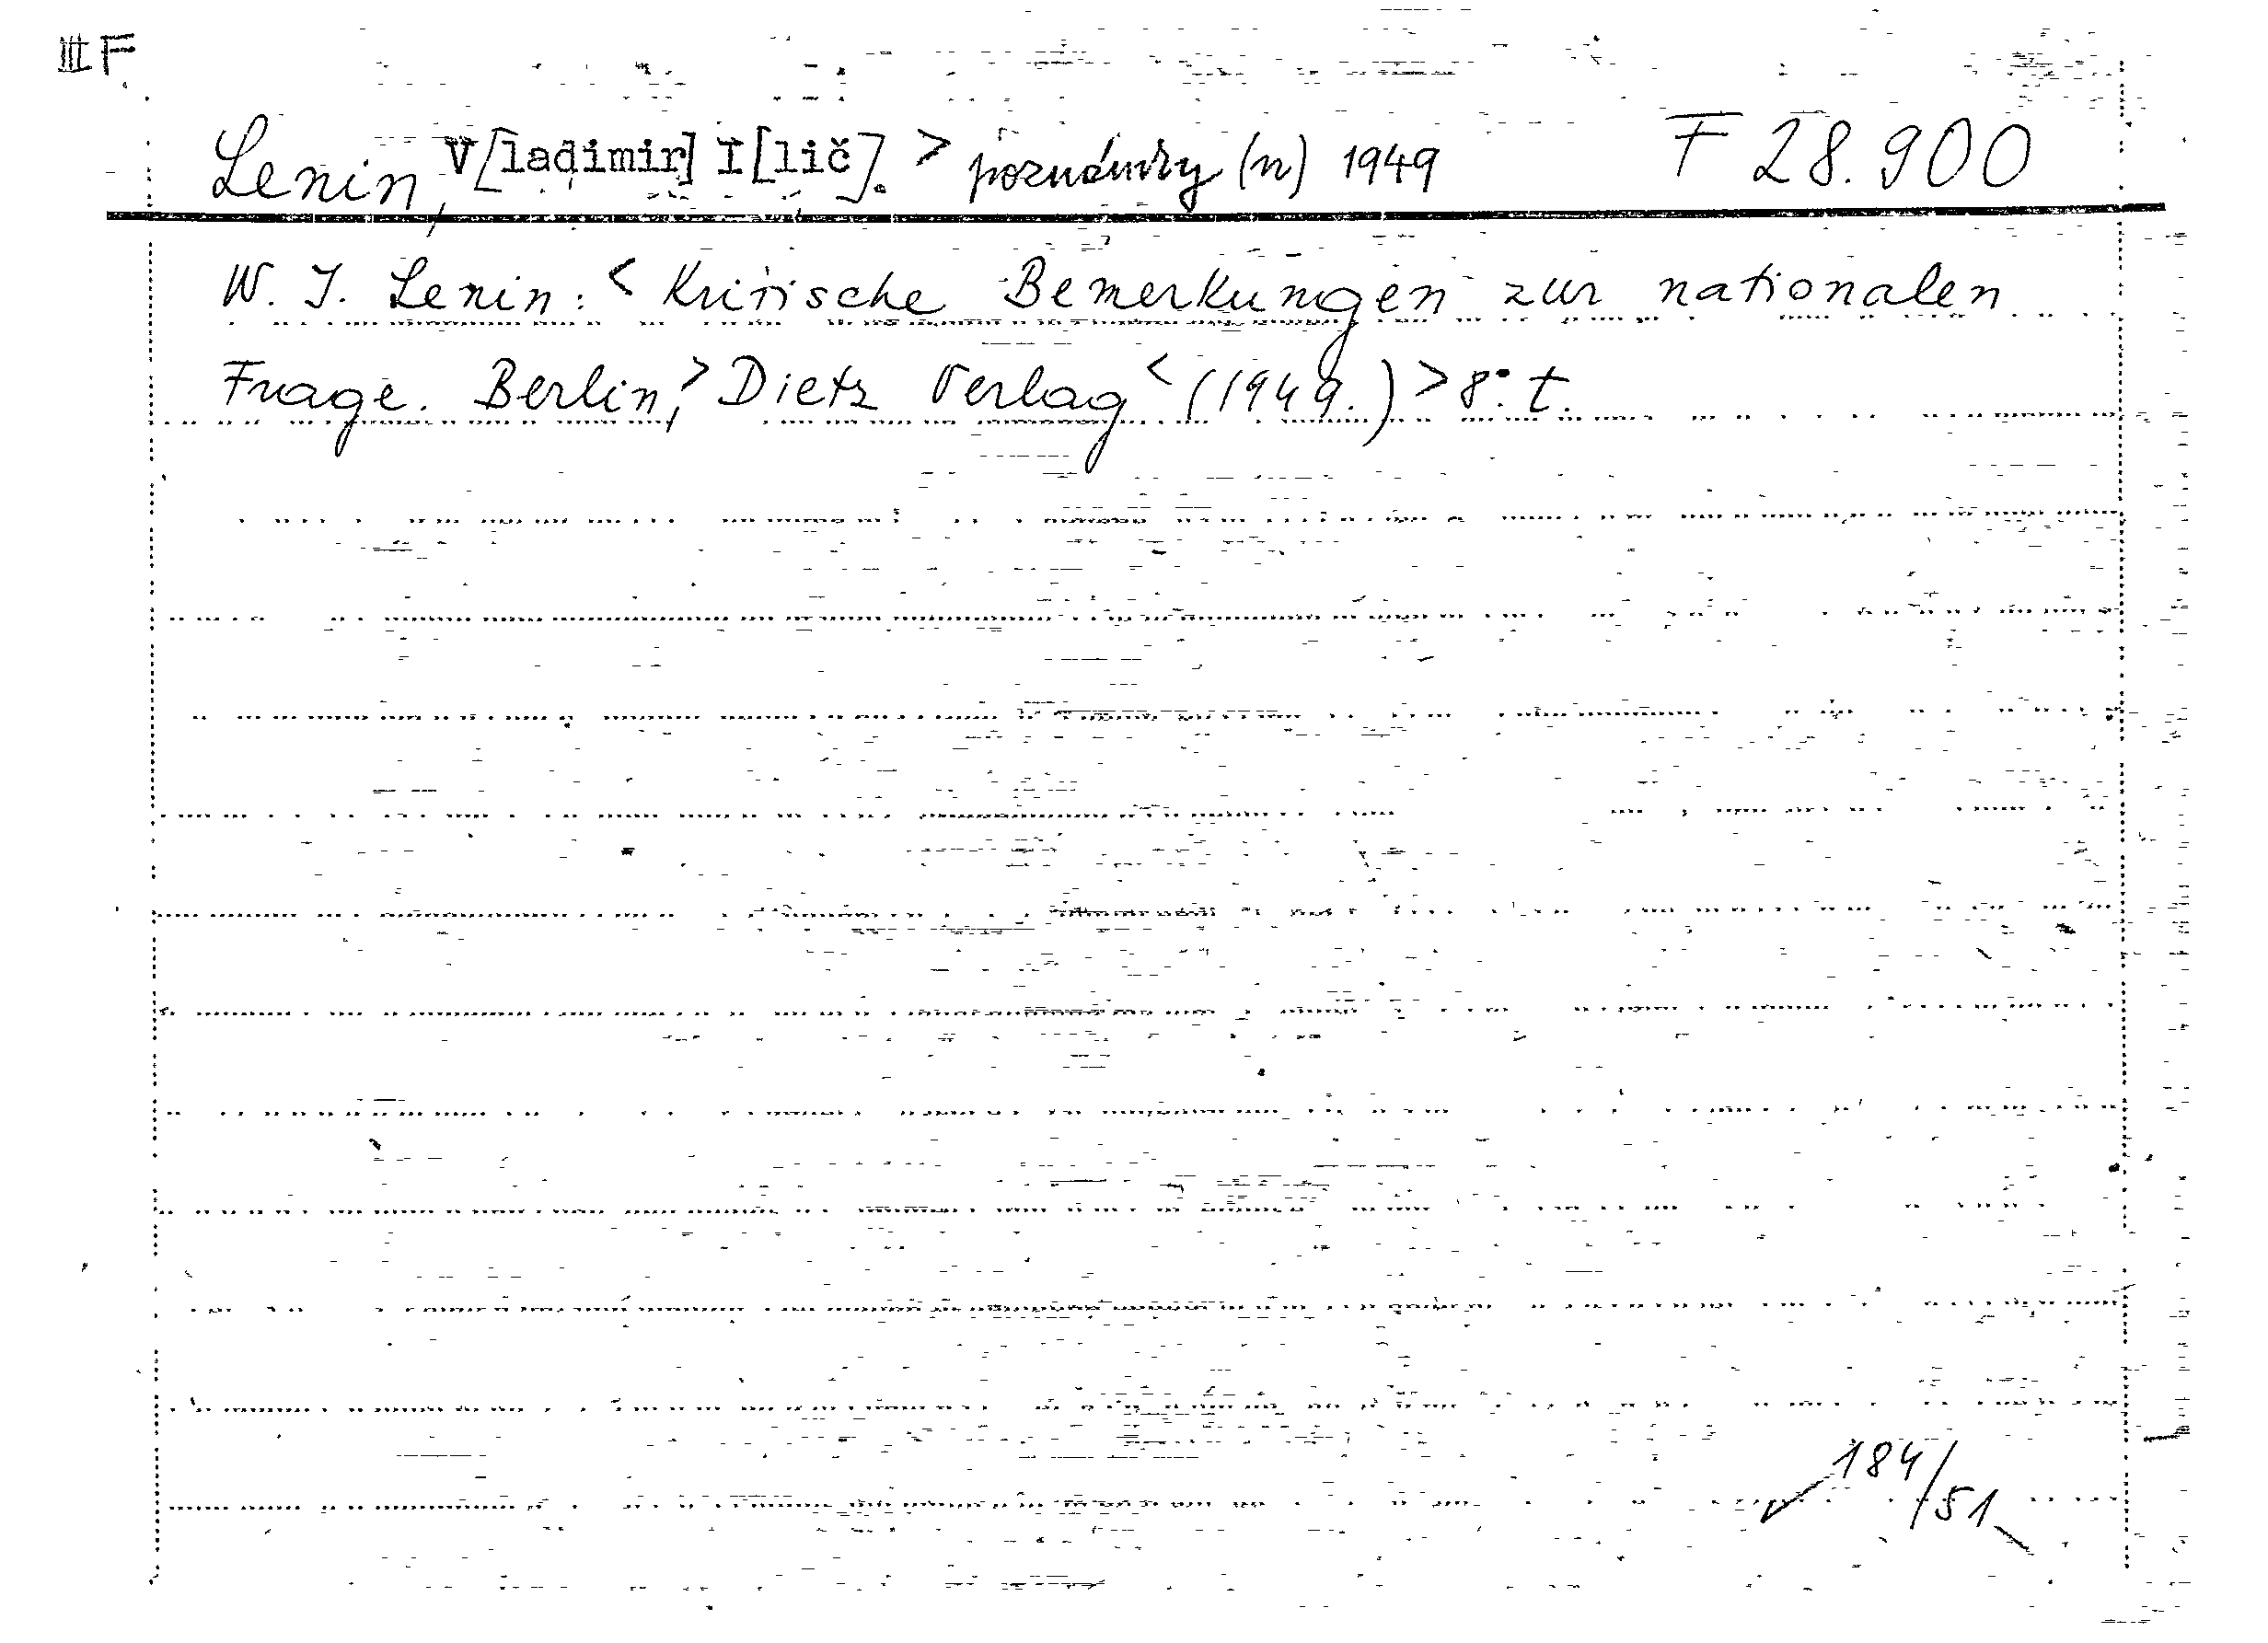 III F
Lenin, V[ladimir] I[lič]. > poznámky (n) 1949 F 28.900
W. I. Lenin: < Kritische Bemerkungen zur nationalen
Frage. Berlin, > Dietz Verlag < (1949.) > 8° t.
184/51